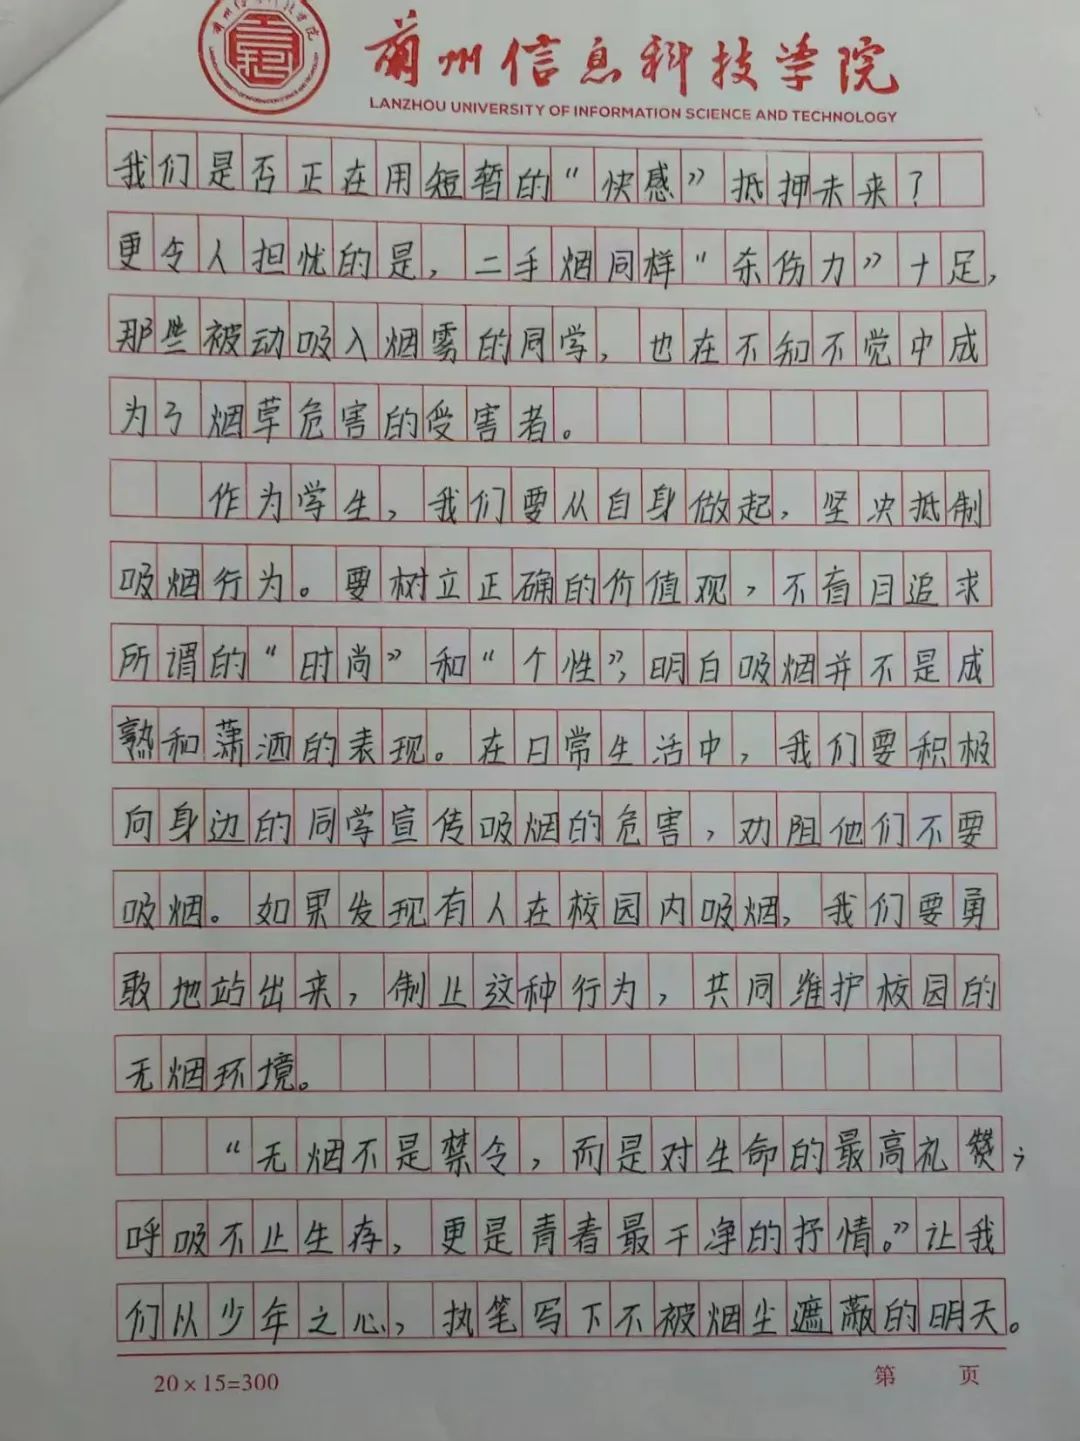 兰州信息科技学院
LANZHOU UNIVERSITY OF INFORMATION SCIENCE AND TECHNOLOGY
我们是否正在用短暂的“快感”抵押未来？
更令人担忧的是，二手烟同样“杀伤力”十足，
那些被动吸入烟雾的同学，也在不知不觉中成
为了烟草危害的受害者。
作为学生，我们要从自身做起，坚决抵制
吸烟行为。要树立正确的价值观，不盲目追求
所谓的“时尚”和“个性”，明白吸烟并不是成
熟和潇洒的表现。在日常生活中，我们要积极
向身边的同学宣传吸烟的危害，劝阻他们不要
吸烟。如果发现有人在校园内吸烟，我们要勇
敢地站出来，制止这种行为，共同维护校园的
无烟环境。
“无烟不是禁令，而是对生命的最高礼赞；
呼吸不止生存，更是青春最干净的抒情。”让我
们以少年之心，执笔写下不被烟尘遮蔽的明天。
20×15=300
第 页